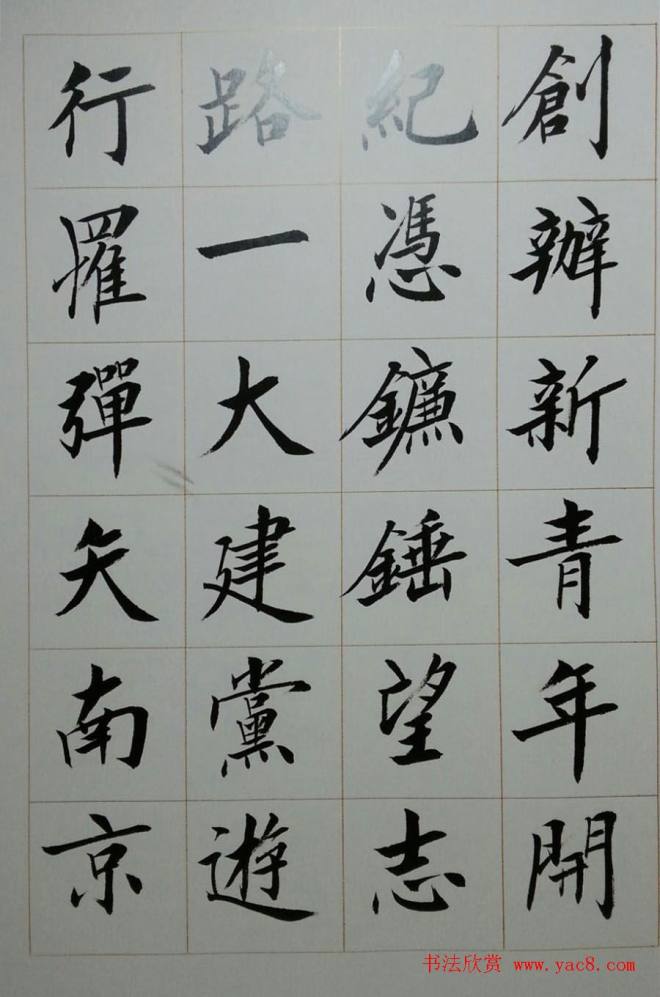 創辦新青年開
紀憑鐮錘望志
路一大建黨遊
行罹彈矢南京
书法欣赏 www.yac8.com